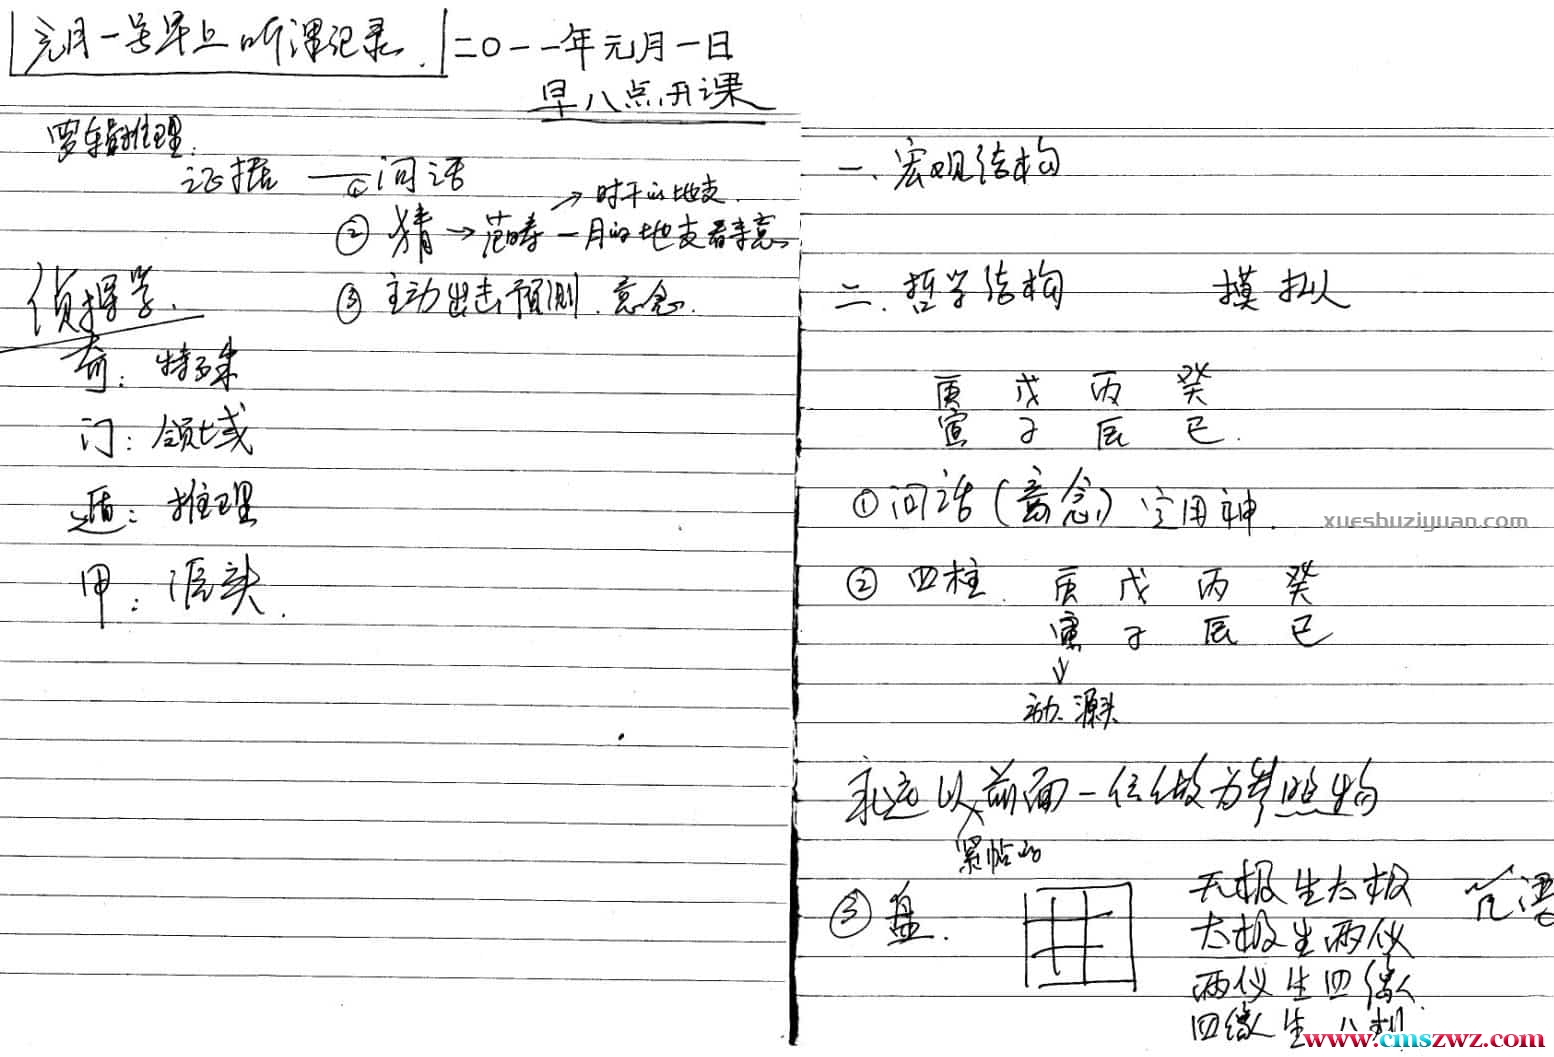 元月一号早上听课记录.
二〇一一年元月一日
早八点开课
罗辑推理:
证据 ① 问话
→时干的地支.
② 猜 → 范畴 一月的地支看来意
③ 主动出击预测.意念.
侦探学.
奇: 特殊
门: 领域
遁: 推理
甲: 源头.
一、宏观结构
二.哲学结构 模拟
庚 戊 丙 癸
寅 子 辰 巳.
① 问话(意念) 定用神.
② 四柱. 庚 戊 丙 癸
寅 子 辰 巳
↓
动.源头
永远以前面一位做为参照物
紧帖的
③ 盘.
无极生太极
太极生两仪
两仪生四像.
四像生八
xuesbuziyuan.com
www.cmszwz.com